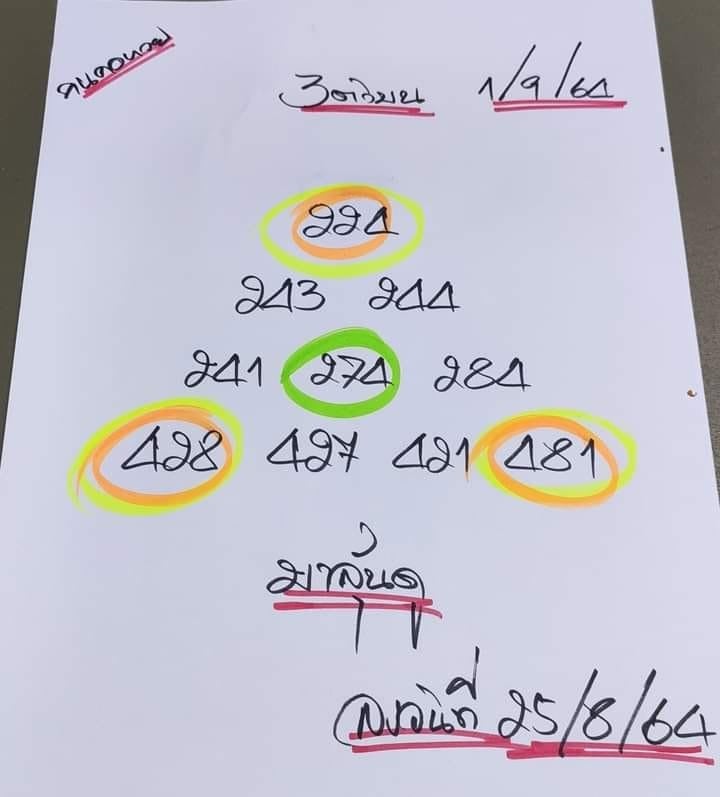 คนคอหวย
3ตัวบน 1/9/64
224
243 244
241 274 284
428 427 421 481
มาลุ้นดู
ลงวันที่ 25/8/64